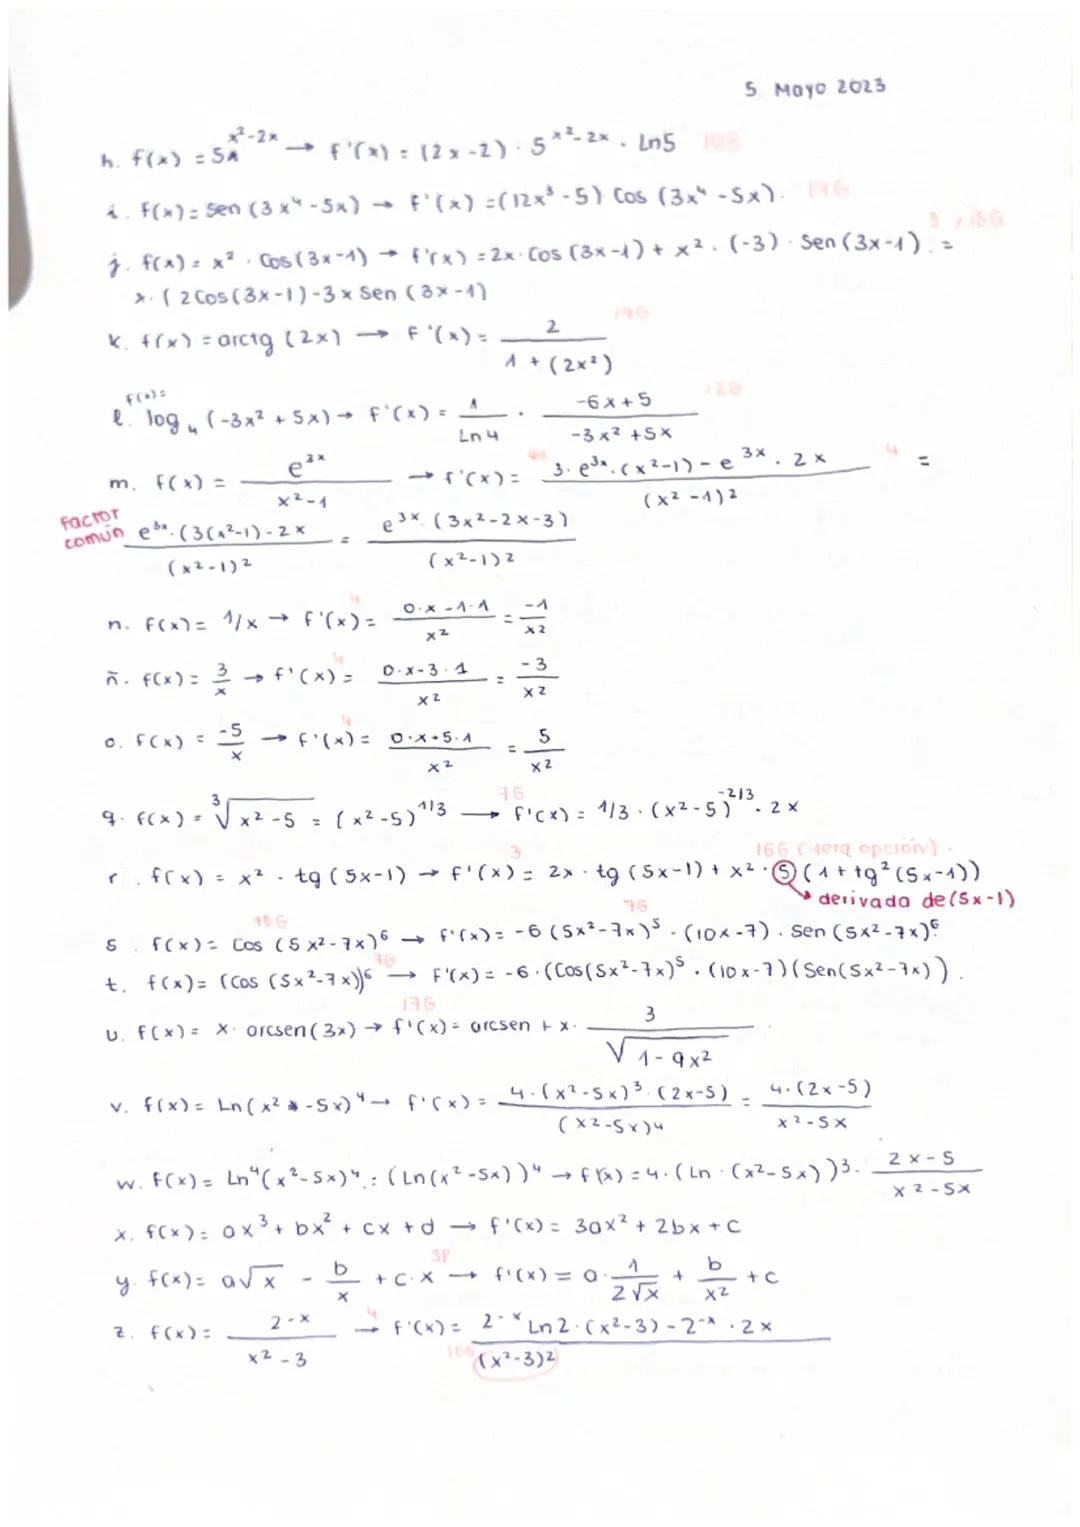 5 Mayo 2023
h. f(x) = 5^(x²-2x) → f'(x) = (2x-2) · 5^(x²-2x) · Ln5 10G
i. f(x) = Sen (3x⁴-5x) → f'(x) = (12x³-5) Cos (3x⁴-5x). 14G
3 y 15G
j. f(x) = x² · Cos(3x-1) → f'(x) = 2x·Cos (3x-1) + x² · (-3) · Sen (3x-1). =
x · (2Cos(3x-1)-3x Sen (3x-1)
k. f(x) = arctg (2x) → f'(x) = 2 / (1 + (2x²)) 19G
f(x)=
l. log₄ (-3x² + 5x) → f'(x) = 1/Ln 4 · (-6x+5)/(-3x²+5x) 12G
m. f(x) = e^(3x) / (x²-1) → f'(x) = (3·e^(3x)·(x²-1) - e^(3x) · 2x) / (x²-1)² 4 =
factor común e^(3x)·(3(x²-1)-2x / (x²-1)² = e^(3x)·(3x²-2x-3) / (x²-1)²
n. f(x) = 1/x → f'(x) = 4 (0·x-1·1)/x² = -1/x²
ñ. f(x) = 3/x → f'(x) = 4 (0·x-3·1)/x² = -3/x²
o. f(x) = -5/x → f'(x) = 4 (0·x+5·1)/x² = 5/x²
q. f(x) = ∛(x²-5) = (x²-5)^(1/3) → 7G f'(x) = 1/3 · (x²-5)^(-2/3) · 2x
3 16G (1era opción).
r. f(x) = x² · tg (5x-1) → f'(x) = 2x · tg (5x-1) + x² · 5 (1+tg²(5x-1))
derivada de (5x-1)
15G 7G
s. f(x) = Cos (5x²-7x)⁶ → f'(x) = -6 (5x²-7x)⁵ · (10x-7) · Sen (5x²-7x)⁶.
7G
t. f(x) = (Cos (5x²-7x))⁶ → f'(x) = -6·(Cos(5x²-7x)⁵ · (10x-7)(Sen(5x²-7x)).
17G
u. f(x) = x · arcsen(3x) → f'(x) = arcsen + x · 3/√(1-9x²).
v. f(x) = Ln(x²-5x)⁴ → f'(x) = 4·(x²-5x)³·(2x-5) / (x²-5x)⁴ = 4·(2x-5) / (x²-5x)
w. f(x) = Ln⁴(x²-5x)⁴ = (Ln(x²-5x))⁴ → f'(x) = 4·(Ln·(x²-5x))³ · (2x-5)/(x²-5x)
x. f(x) = ax³ + bx² + cx + d → f'(x) = 3ax² + 2bx + c
3P
y. f(x) = a√x - b/x + c·x → f'(x) = a · 1/(2√x) + b/x² + c
z. f(x) = 2^(-x) / (x²-3) → 4 f'(x) = 10G (2^(-x) Ln2·(x²-3) - 2^(-x) · 2x) / (x²-3)²